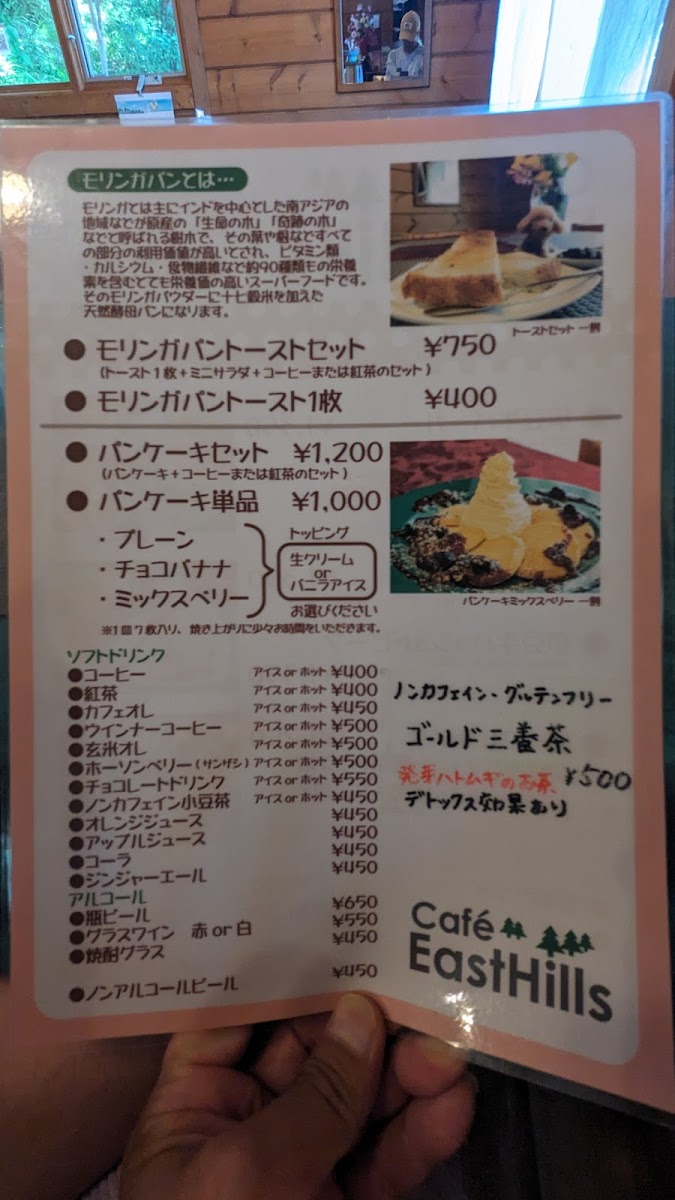 モリンガパンとは…
モリンガとは主にインドを中心とした南アジアの
地域などが原産の「生命の木」「奇跡の木」
などと呼ばれる樹木で、その葉や根などすべて
の部分の利用価値が高いとされ、ビタミン類
・カルシウム・食物繊維など約90種類もの栄養
素を含むとても栄養価の高いスーパーフードです。
そのモリンガパウダーに十七穀米を加えた
天然酵母パンになります。
トーストセット 一例
● モリンガパントーストセット ¥750
(トースト1枚+ミニサラダ+コーヒーまたは紅茶のセット)
● モリンガパントースト1枚 ¥400
● パンケーキセット ¥1,200
(パンケーキ+コーヒーまたは紅茶のセット)
● パンケーキ単品 ¥1,000
・プレーン
・チョコバナナ
・ミックスベリー
トッピング
生クリーム
or
バニラアイス
お選びください
パンケーキミックスベリー 一例
※1皿7枚入り、焼き上がりに少々お時間をいただきます。
ソフトドリンク
●コーヒー アイス or ホット ¥400
●紅茶 アイス or ホット ¥400
●カフェオレ アイス or ホット ¥450
●ウインナーコーヒー アイス or ホット ¥500
●玄米オレ アイス or ホット ¥500
●ホーソンベリー(サンザシ) アイス or ホット ¥500
●チョコレートドリンク アイス or ホット ¥550
●ノンカフェイン小豆茶 アイス or ホット ¥450
●オレンジジュース ¥450
●アップルジュース ¥450
●コーラ ¥450
●ジンジャーエール ¥450
アルコール
●瓶ビール ¥650
●グラスワイン 赤 or 白 ¥550
●焼酎グラス ¥450
●ノンアルコールビール ¥450
ノンカフェイン・グルテンフリー
ゴールド三養茶
発芽ハトムギのお茶 ¥500
デトックス効果あり
Café
EastHills